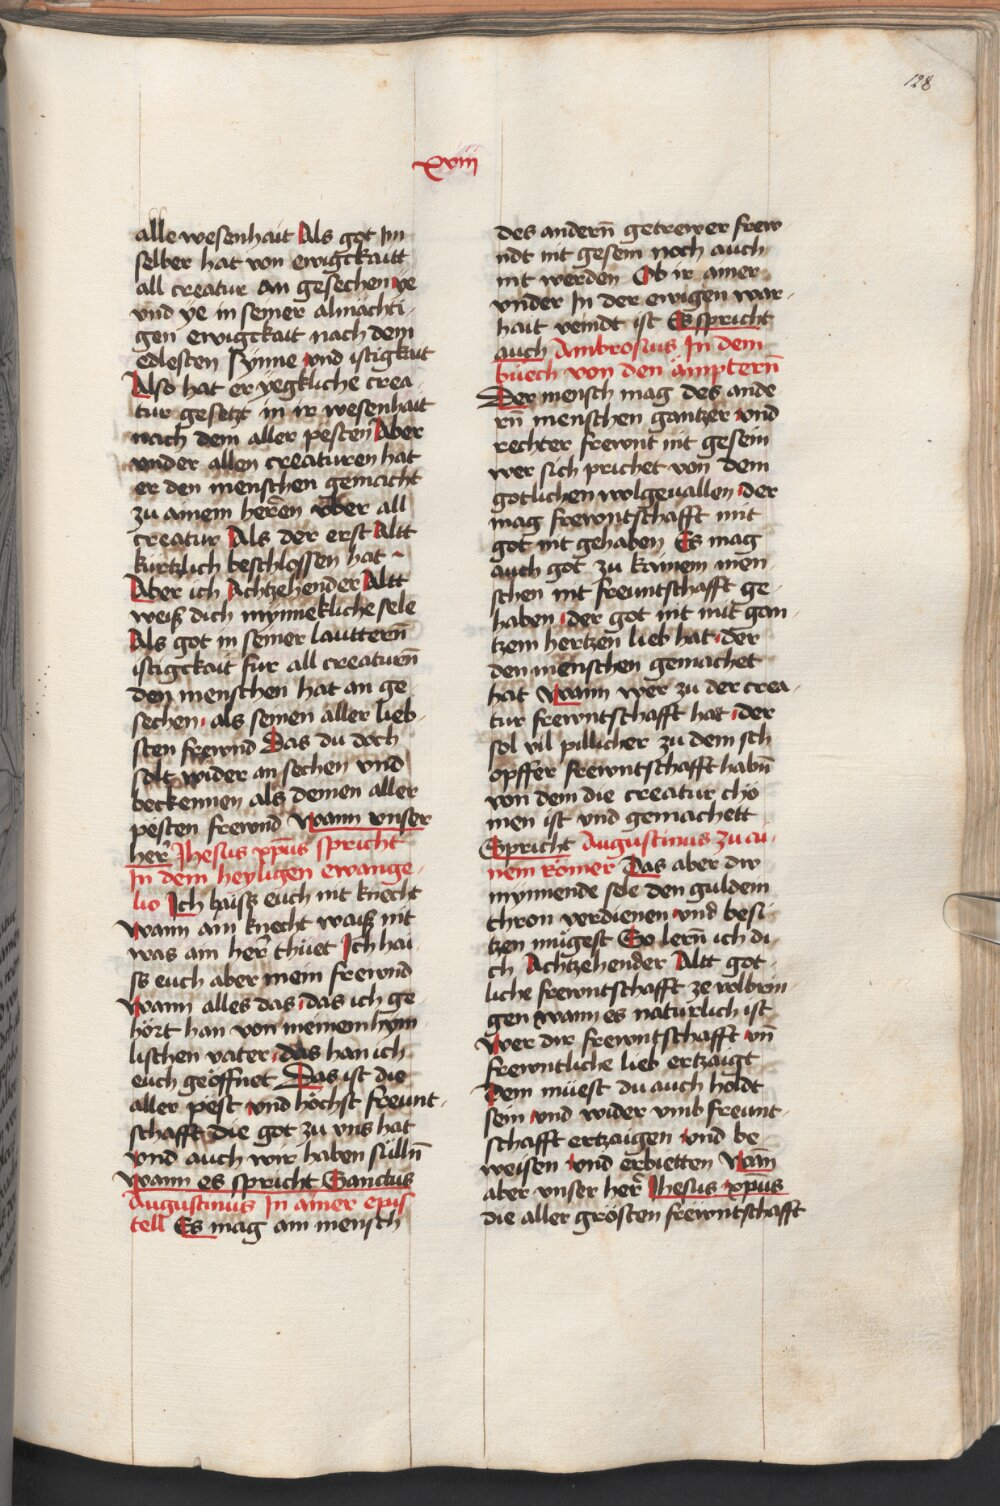 128
xviij
alle wesenhait Als got Im
selber hat von ewigckaitt
all creatur an gesechen ye
vnd ÿe in seiner almächti-
gen ewigckait nach dem
edlesten Sÿnne vnd istigkait
Also hat er yegkliche crea-
tur gesetzt in ir wesenhait
nach dem aller pesten Aber
vnder allen creaturen hat
er den menschen gemacht
zu ainem heren vber all
creatur Als der erst Altt
kürtzlich beschlossen hat ~
Aber ich Achtzehender Altt
weiß dich mÿnnekliche sele
Als got in seiner lautterñ
istigckait fur all creaturñ
den menschen hat an ge-
sechen als seinen aller lieb-
sten frewnd Das du doch
solt wider an sechen vnd
beckennen als deinen aller
pesten frewnd Wann vnser
her Jhesus xp̄us spricht
In dem heyligen ewange-
lio Ich haiss euch nit knecht
Wann ain knecht waiß nit
was ain her thüet Ich hai-
ss euch aber mein frewnd
Wann alles das das ich ge-
hört han von meinem hÿm-
lischen vater das han ich
euch geöffnet Das ist die
aller pest vnd höchst freunt-
schafft die got zu vns hat
vnd auch wir haben süllñ
Wann es spricht Sanctus
Augustinus In ainer epis
tell Es mag ain mensch
des anderñ getrewer frew
ndt nit gesein noch auch
nit werden Ob ir ainer
vnder In der ewigen war-
hait veindt ist Es spricht
auch Ambrosius In dem
büech von den ämpterñ
Der mensch mag des ande
rñ menschen gantzer vnd
rechter frewnt nit gesein
wer sich prichet von dem
gotlichen wolgeuallen der
mag frewntschafft mit
got nit gehaben Es mag
auch got zu kainem men-
schen nit freuntschafft ge-
haben der got nit mit gan-
tzem hertzen lieb hat der
den menschen gemachet
hat Wann wer zu der crea-
tur frewntschafft hat der
sol vil pillicher zu dem sch
öpffer frewntschafft habñ
von dem die creatur chö
men ist vnd gemachett
Spricht Augustinus zu ai-
nem Römer Das aber dw
mÿnnende sele den guldein
thron verdienen vnd besi-
tzen mügest So lerñ ich di
ch Achtzehender Altt got-
liche frewntschafft ze volbrin-
gen wann es natürlich ist
Wer dir frewntschafft vñ
frewntliche lieb ertzaigt
Dem müest du auch holdt
sein vnd wider vmb freunt-
schafft ertzaigen vnd be
weisen vnd erbietten Wañ
aber vnser her Jhesus xp̄us
die aller grösten frëwntschafft